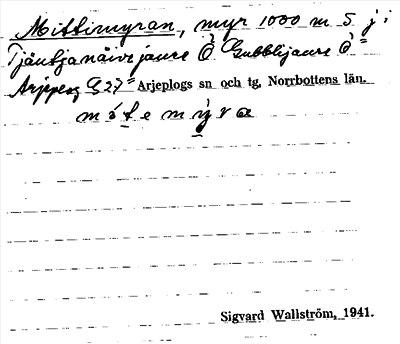 Mittimyran, myr 1000 m S j:
Tjäutjanäive jaure Ö Gubblijaure Ö
Arjeplog G27 Arjeplogs sn och tg, Norrbottens län.
mɩ́temẏra
Sigvard Wallström, 1941.